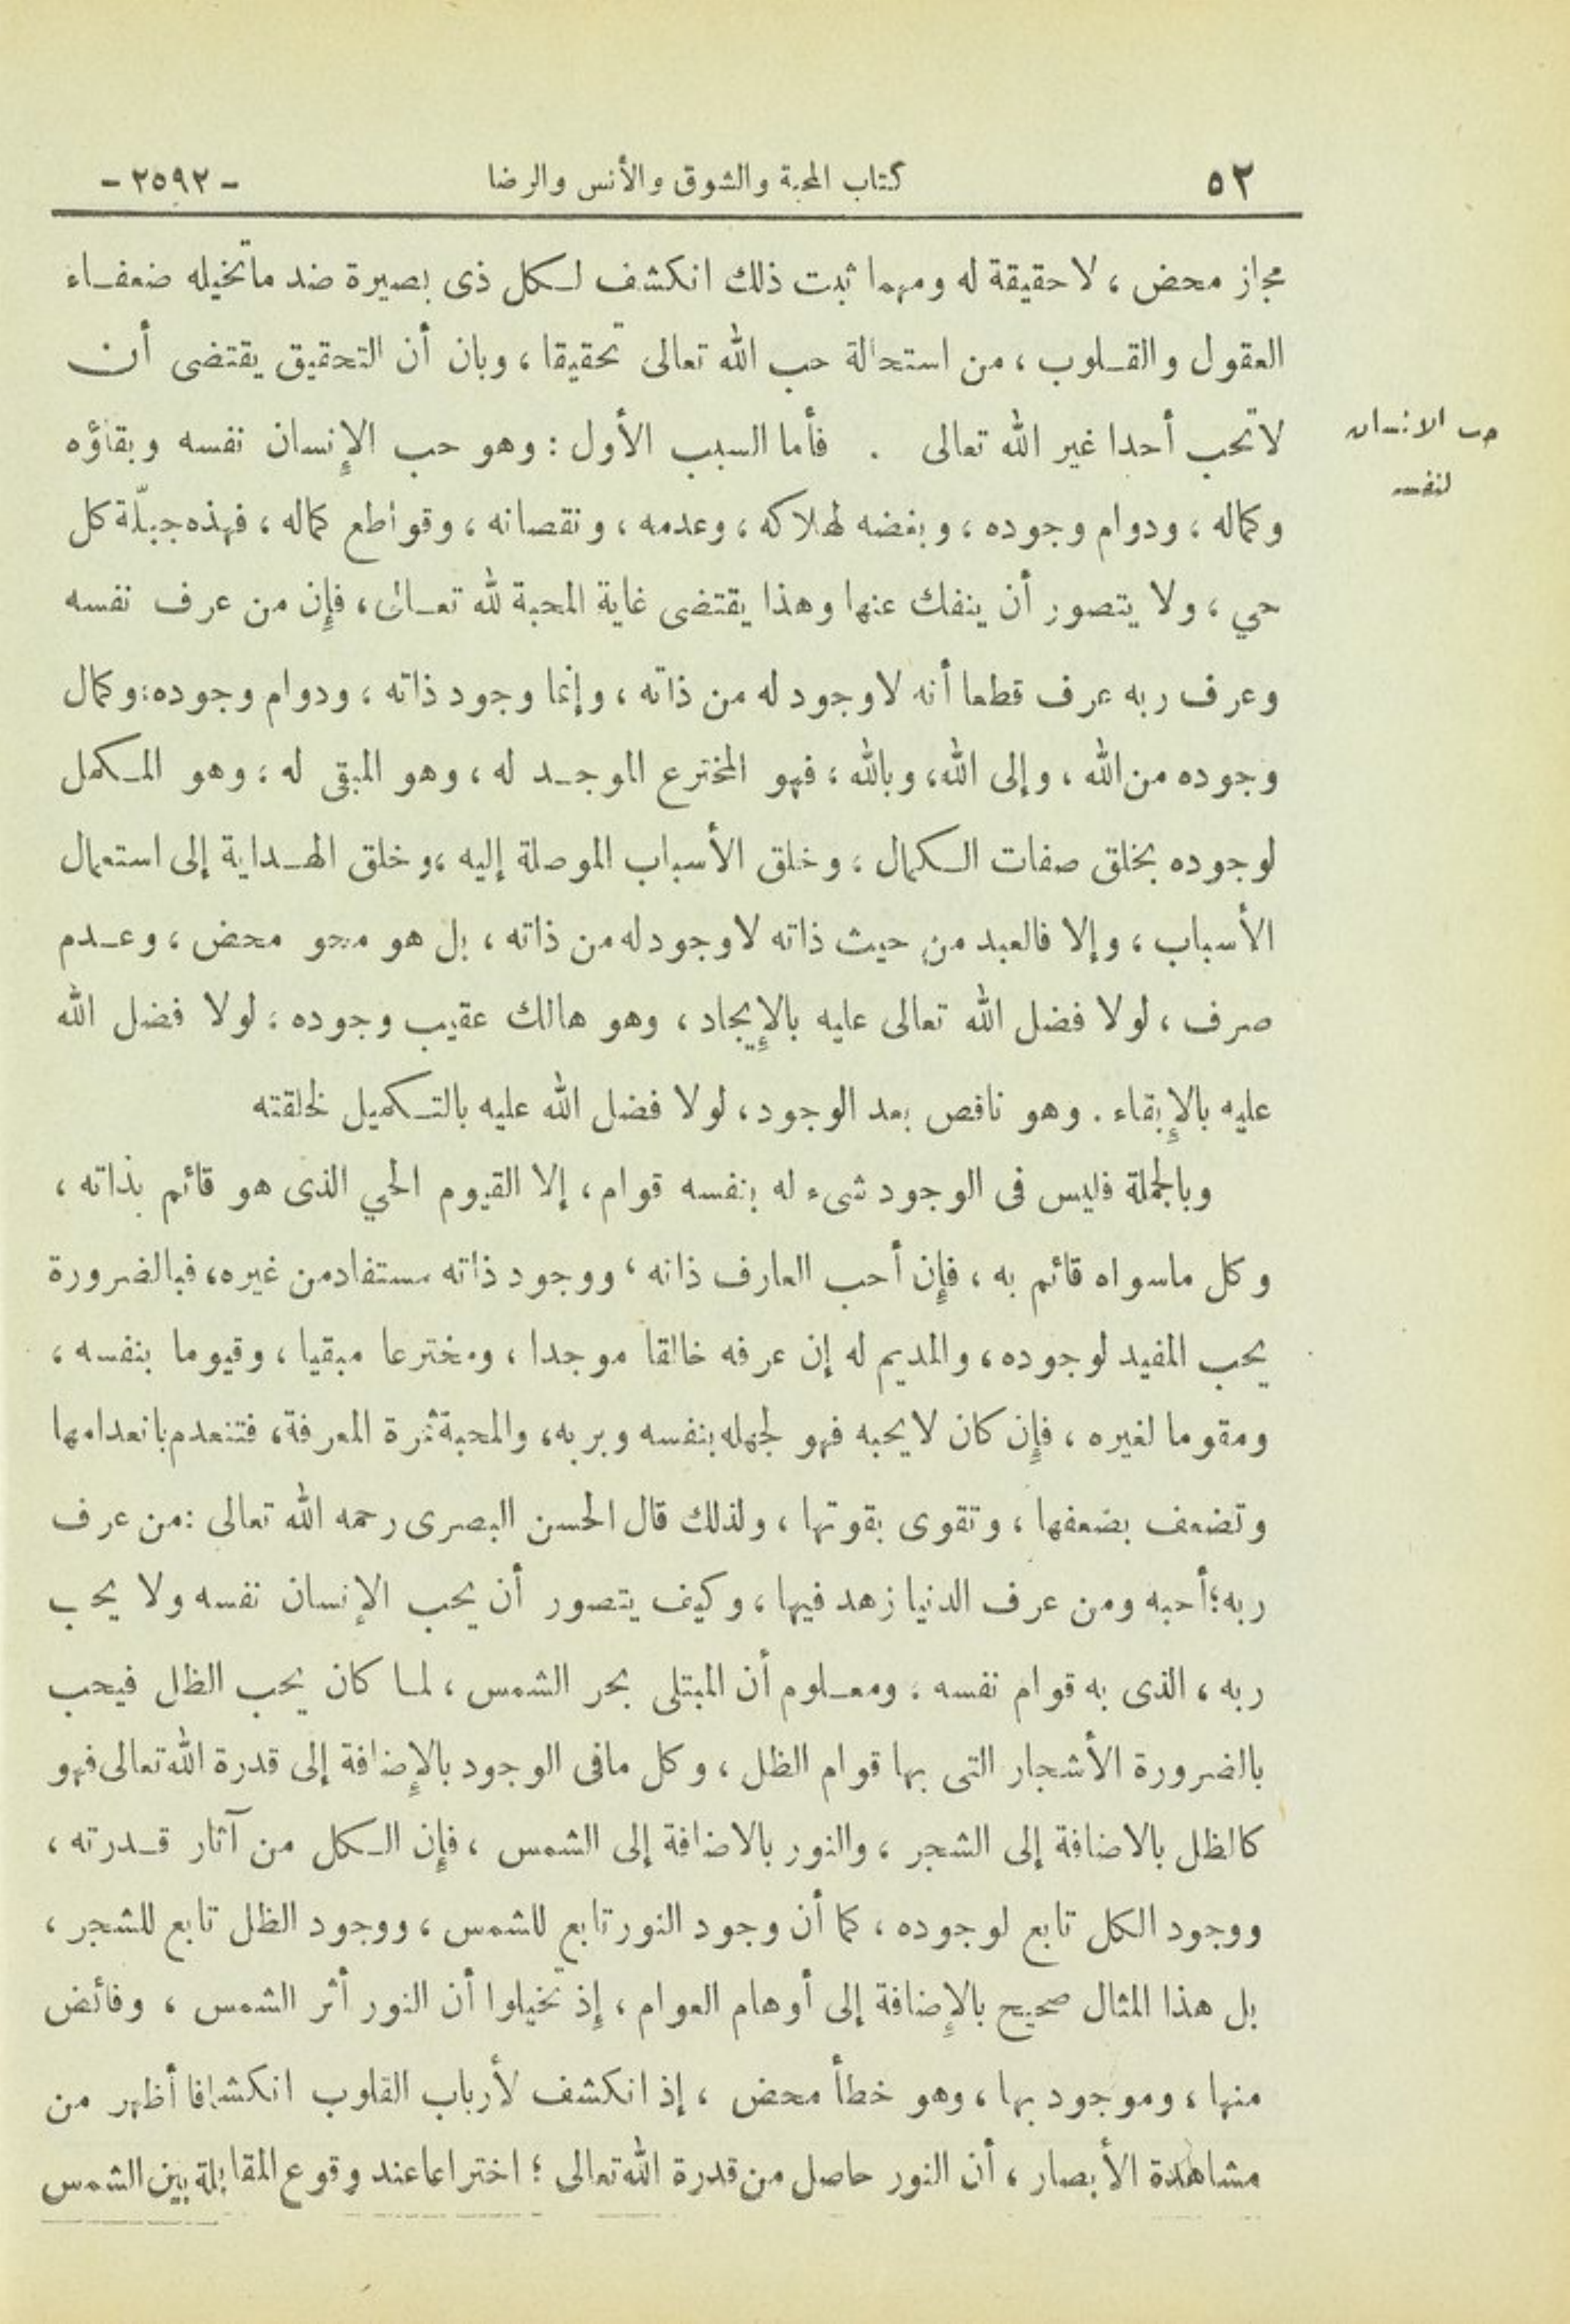 ٥٢ كتاب المحبة والشوق والأنس والرضا - ٢٥٩٢ -
مجاز محض ، لا حقيقة له ومهما ثبت ذلك انكشف لكل ذى بصيرة ضد ماتخيله ضعفاء
العقول والقلوب ، من استحالة حب الله تعالى تحقيقا ، وبان أن التحقيق يقتضى أن
لاتحب أحدا غير الله تعالى . فأما السبب الأول : وهو حب الإنسان نفسه وبقاؤه
حب الانسان
لنفسه
وكماله ، ودوام وجوده ، وبغضه لهلاكه ، وعدمه ، ونقصانه ، وقواطع كماله ، فهذه جبلّة كل
حي ، ولا يتصور أن ينفك عنها وهذا يقتضى غاية المحبة لله تعالى ، فإن من عرف نفسه
وعرف ربه عرف قطعا أنه لاوجود له من ذاته ، وإنما وجود ذاته ، ودوام وجوده ، وكمال
وجوده من الله ، وإلى الله ، وبالله ، فهو المخترع الموجد له ، وهو المبقى له ، وهو المكمل
لوجوده بخلق صفات الكمال ، وخلق الأسباب الموصلة إليه ، وخلق الهداية إلى استعمال
الأسباب ، وإلا فالعبد من حيث ذاته لاوجود له من ذاته ، بل هو محو محض ، وعدم
صرف ، لولا فضل الله تعالى عليه بالإيجاد ، وهو هالك عقيب وجوده ، لولا فضل الله
عليه بالإبقاء . وهو ناقص بعد الوجود ، لولا فضل الله عليه بالتكميل لخلقته
وبالجملة فليس فى الوجود شىء له بنفسه قوام ، إلا القيوم الحي الذى هو قائم بذاته ،
وكل ماسواه قائم به ، فإن أحب العارف ذاته ، ووجود ذاته مستفاد من غيره ، فبالضرورة
يحب المفيد لوجوده ، والمديم له إن عرفه خالقا موجدا ، ومخترعا مبقيا ، وقيوما بنفسه ،
ومقوما لغيره ، فإن كان لايحبه فهو لجهله بنفسه وبربه ، والمحبة ثمرة المعرفة ، فتنعدم بانعدامها
وتضعف بضعفها ، وتقوى بقوتها ، ولذلك قال الحسن البصرى رحمه الله تعالى : من عرف
ربه ؛ أحبه ومن عرف الدنيا زهد فيها ، وكيف يتصور أن يحب الإنسان نفسه ولا يحب
ربه ، الذى به قوام نفسه ، ومعلوم أن المبتلى بحر الشمس ، لما كان يحب الظل فيحب
بالضرورة الأشجار التى بها قوام الظل ، وكل مافى الوجود بالإضافة إلى قدرة الله تعالى فهو
كالظل بالاضافة إلى الشجر ، والنور بالاضافة إلى الشمس ، فإن الكل من آثار قدرته ،
ووجود الكل تابع لوجوده ، كما أن وجود النور تابع للشمس ، ووجود الظل تابع للشجر ،
بل هذا المثال صحيح بالإضافة إلى أوهام العوام ، إذ تخيلوا أن النور أثر الشمس ، وفائض
منها ، وموجود بها ، وهو خطأ محض ، إذ انكشف لأرباب القلوب انكشافا أظهر من
مشاهدة الأبصار ، أن النور حاصل من قدرة الله تعالى ؛ اختراعا عند وقوع المقابلة بين الشمس